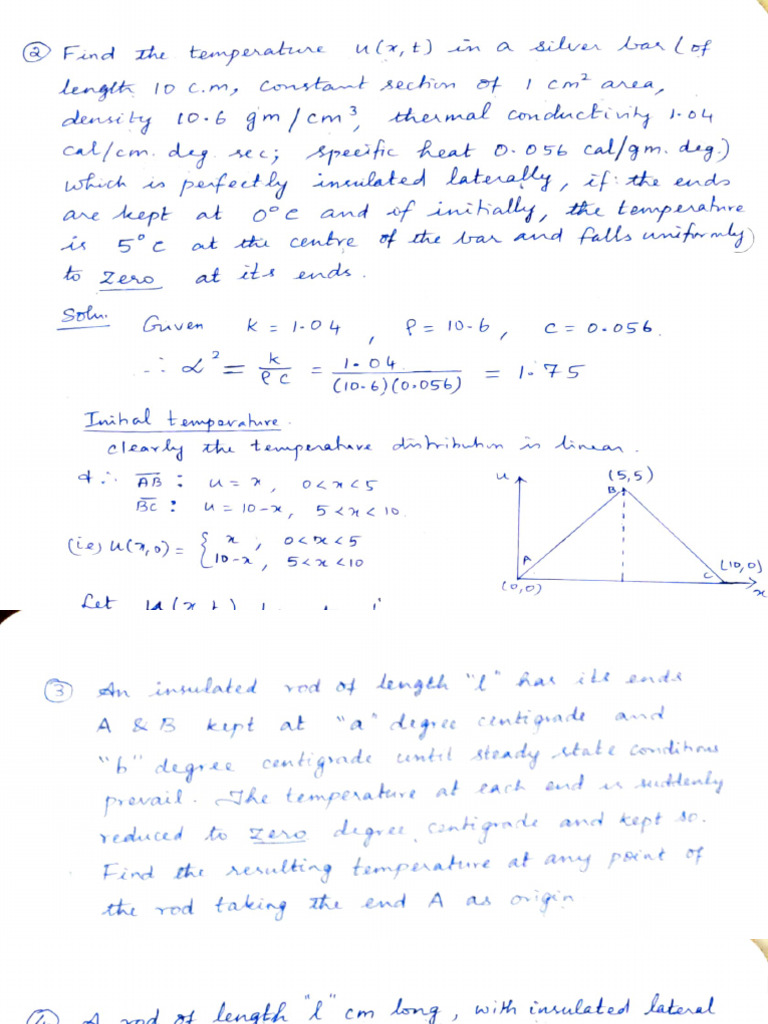 ② Find the temperature u(x,t) in a silver bar (of
length 10 c.m, constant section of 1 cm² area,
density 10.6 gm/cm³, thermal conductivity 1.04
cal/cm. deg. sec; specific heat 0.056 cal/gm. deg.)
which is perfectly insulated laterally, if: the ends
are kept at 0°c and if initially, the temperature
is 5°c at the centre of the bar and falls uniformly
to zero at its ends.
Soln. Given k = 1.04, ρ = 10.6, c = 0.056.
∴ α² = k/ρc = 1.04/(10.6)(0.056) = 1.75
Initial temperature.
clearly the temperature distribution is linear.
& ∴ AB : u = x, 0<x<5
BC : u = 10-x, 5<x<10.
(ie) u(x,0) = { x, 0<x<5
10-x, 5<x<10
u
(5,5)
B
A
(10,0)
C
x
(0,0)
Let u(x t)
③ An insulated rod of length "l" has its ends
A & B kept at "a" degree centigrade and
"b" degree centigrade until steady state conditions
prevail. The temperature at each end is suddenly
reduced to zero degree centigrade and kept so.
Find the resulting temperature at any point of
the rod taking the end A as origin
④ A rod of length "l" cm long, with insulated lateral